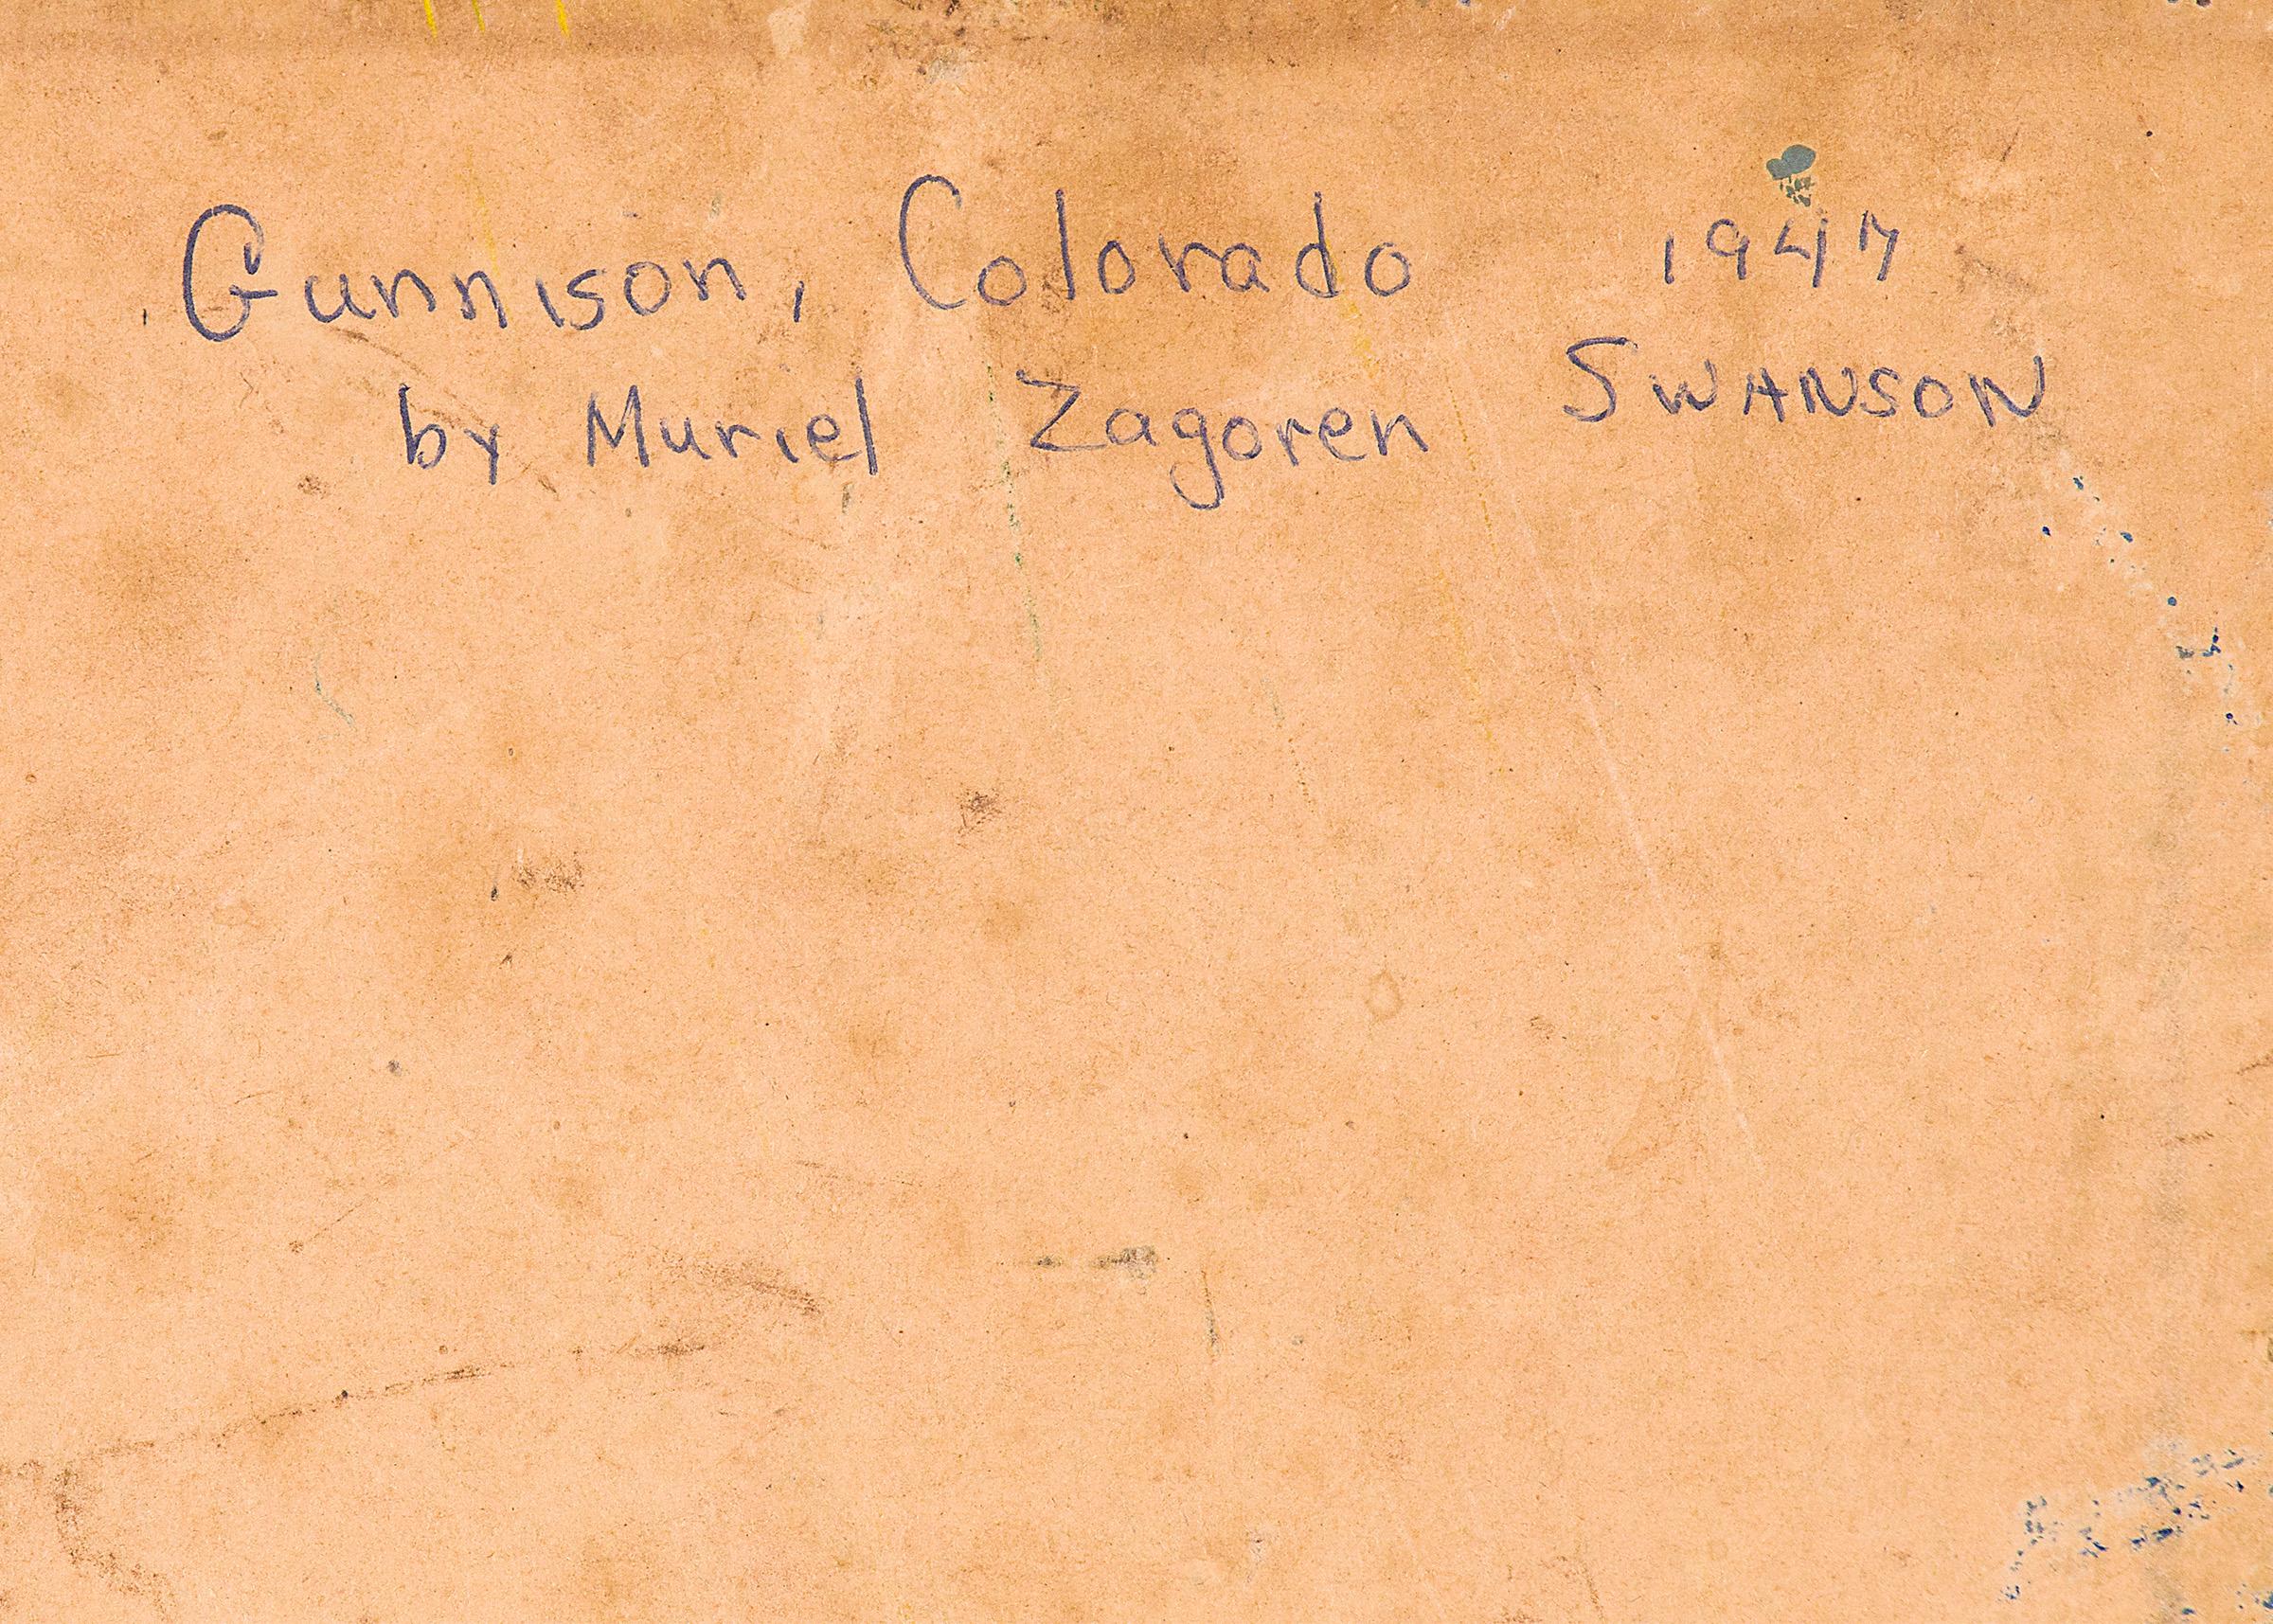 Gunnison, Colorado 1947
by Muriel Zagoren SWANSON